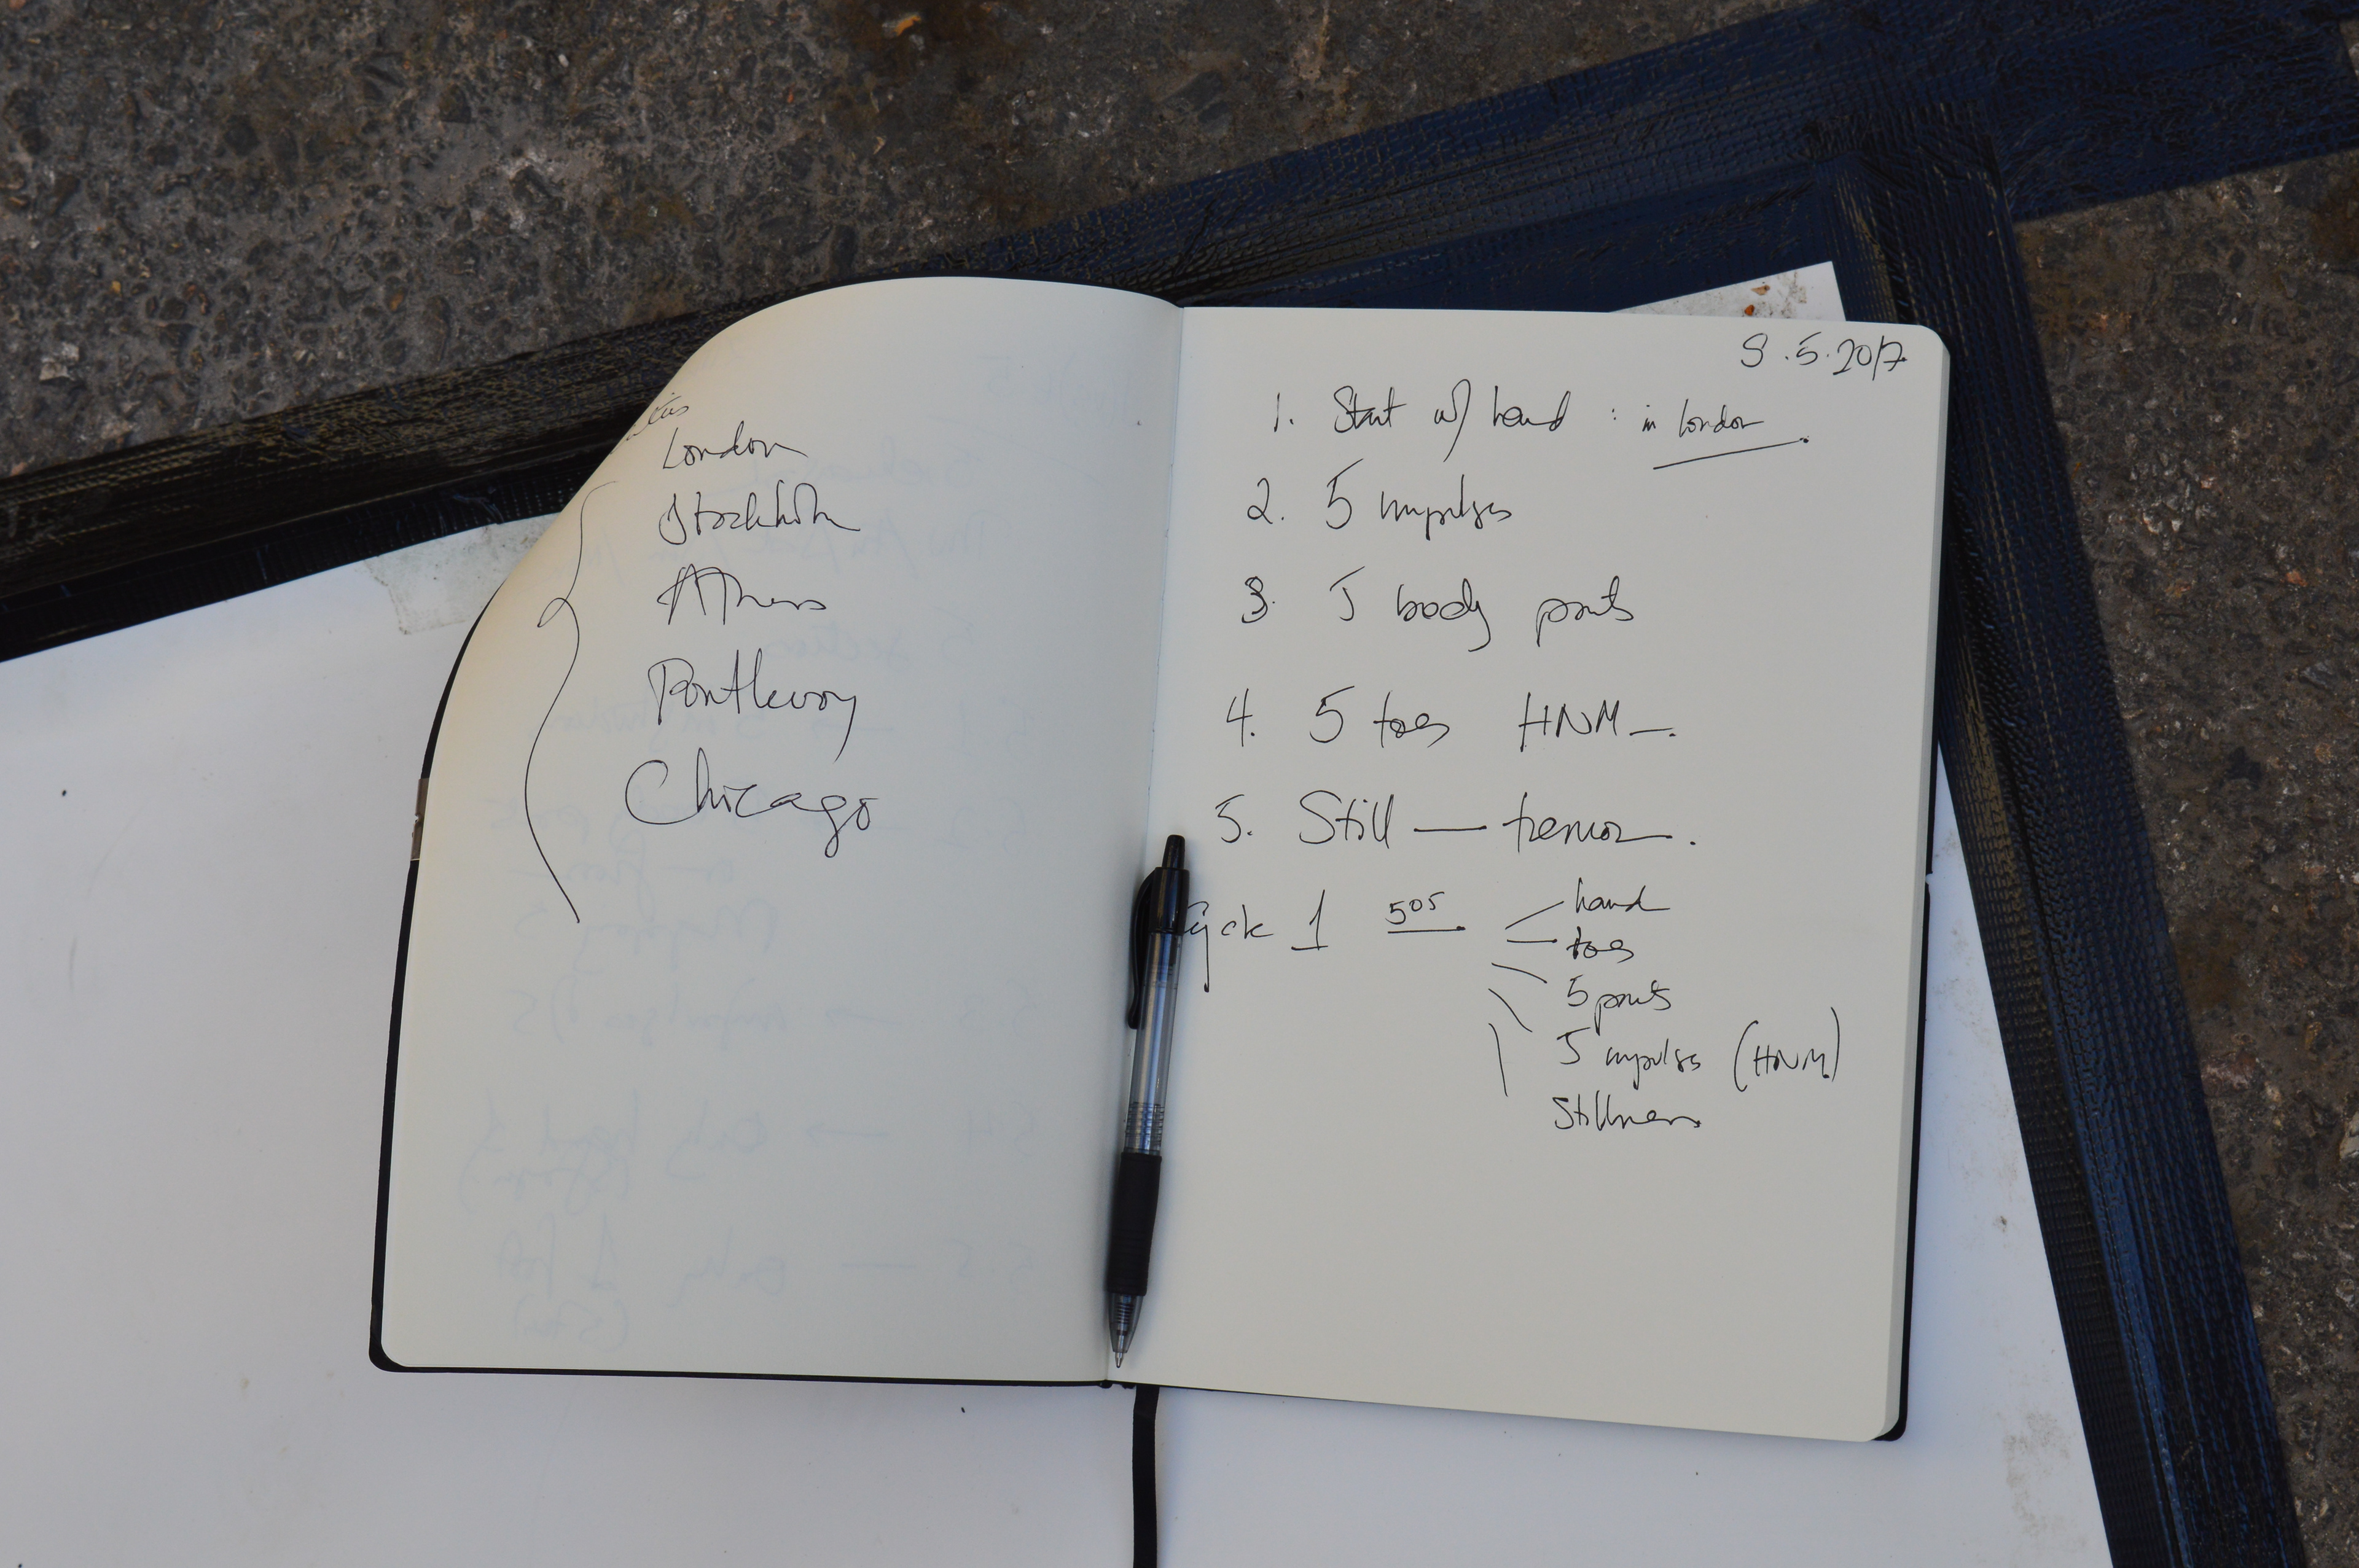 London
Stockholm
Athens
Pontlevoy
Chicago
8.5.2017
1. Start w/ hand : in London
2. 5 impulses
3. 5 body parts
4. 5 toes HNM
5. Still — tremor.
Cycle 1 505
hand
toes
5 parts
5 impulses (HNM)
Stillness